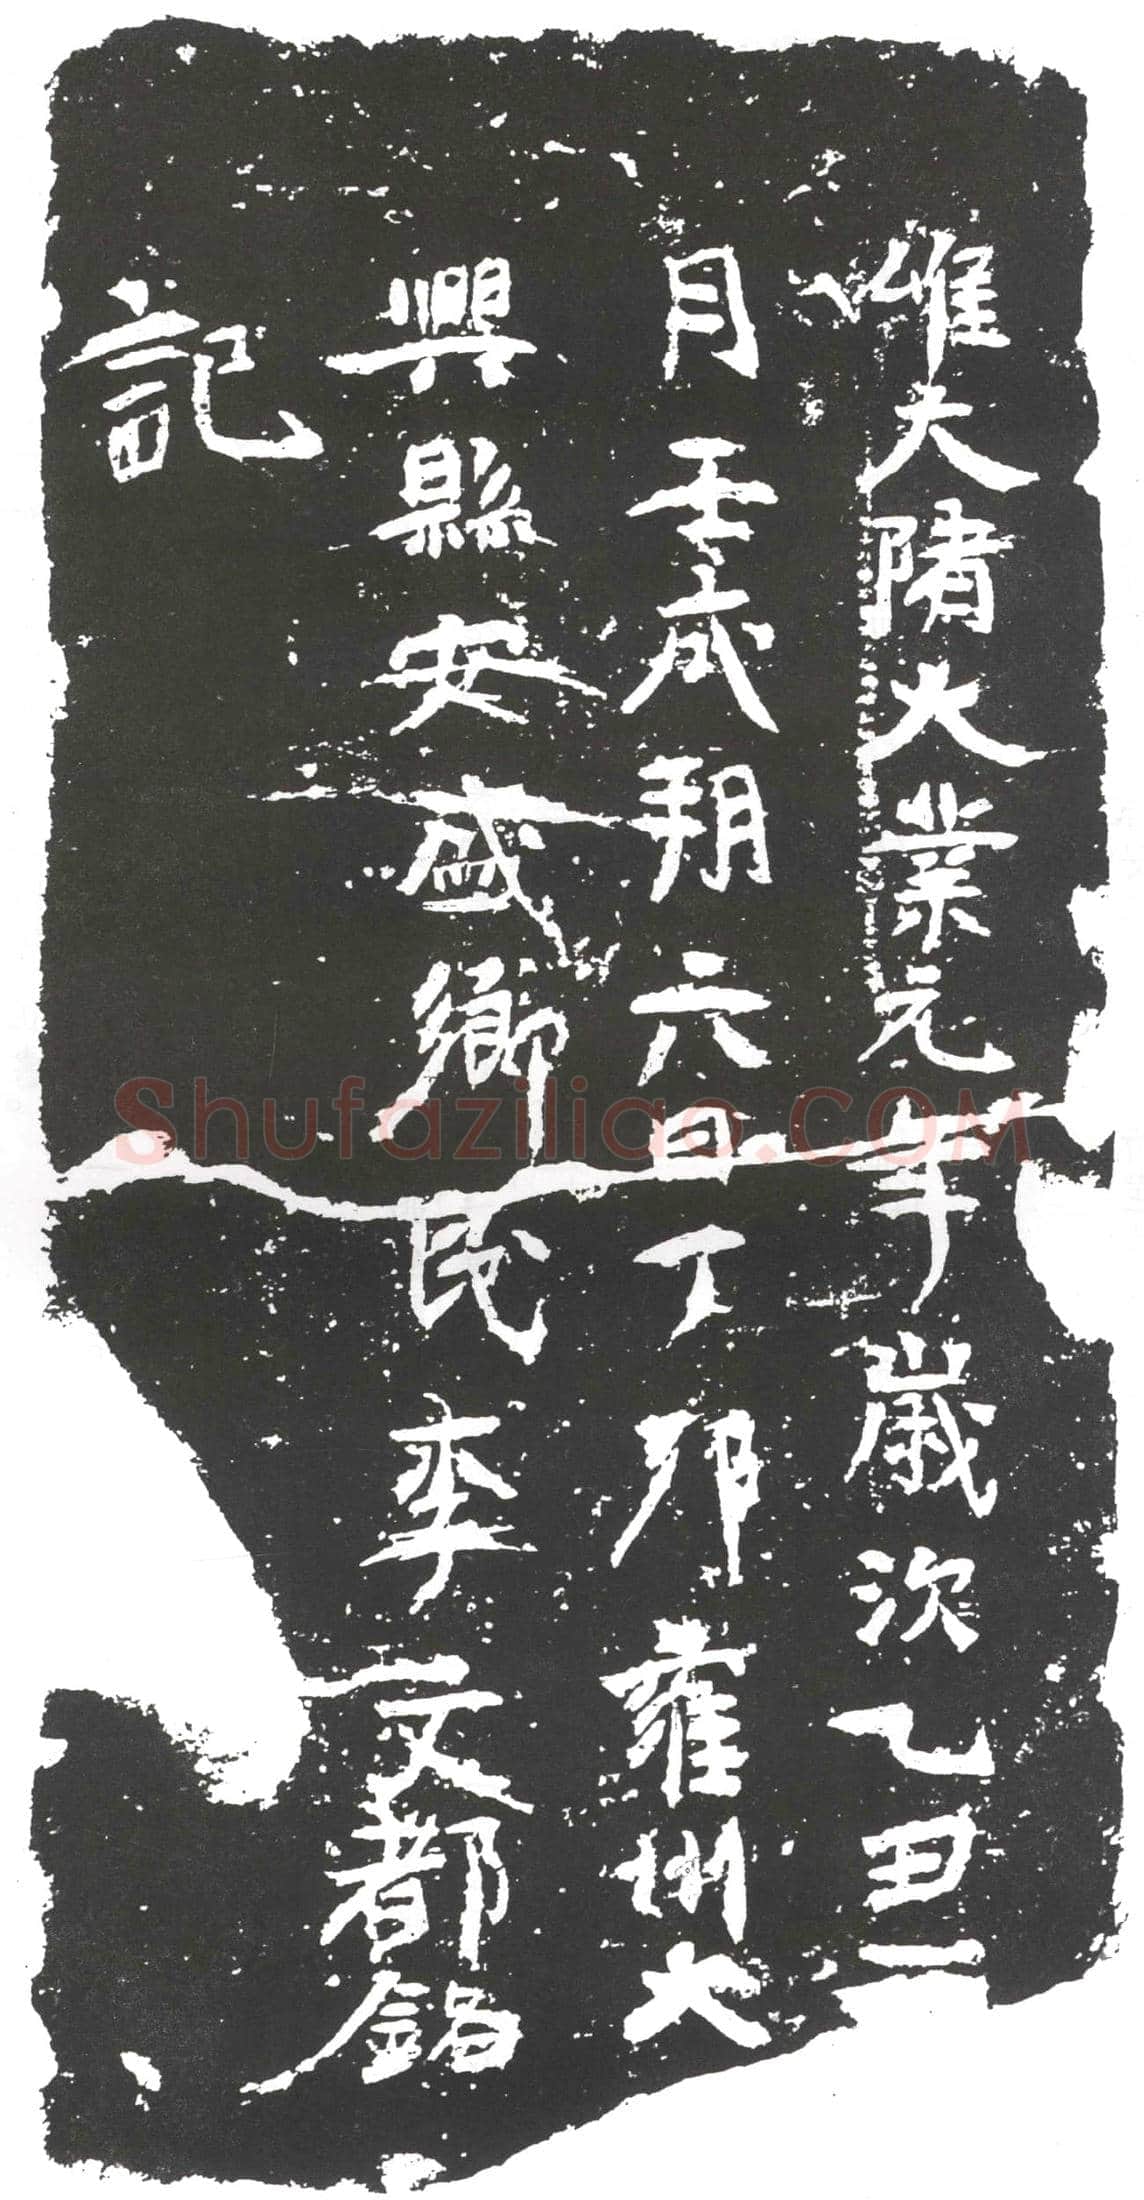 惟大隋大業元年歲次乙丑一
月壬戌朔六日丁卯雍州大
興縣安盛鄉民李文都銘
記
Shufaziliao.COM